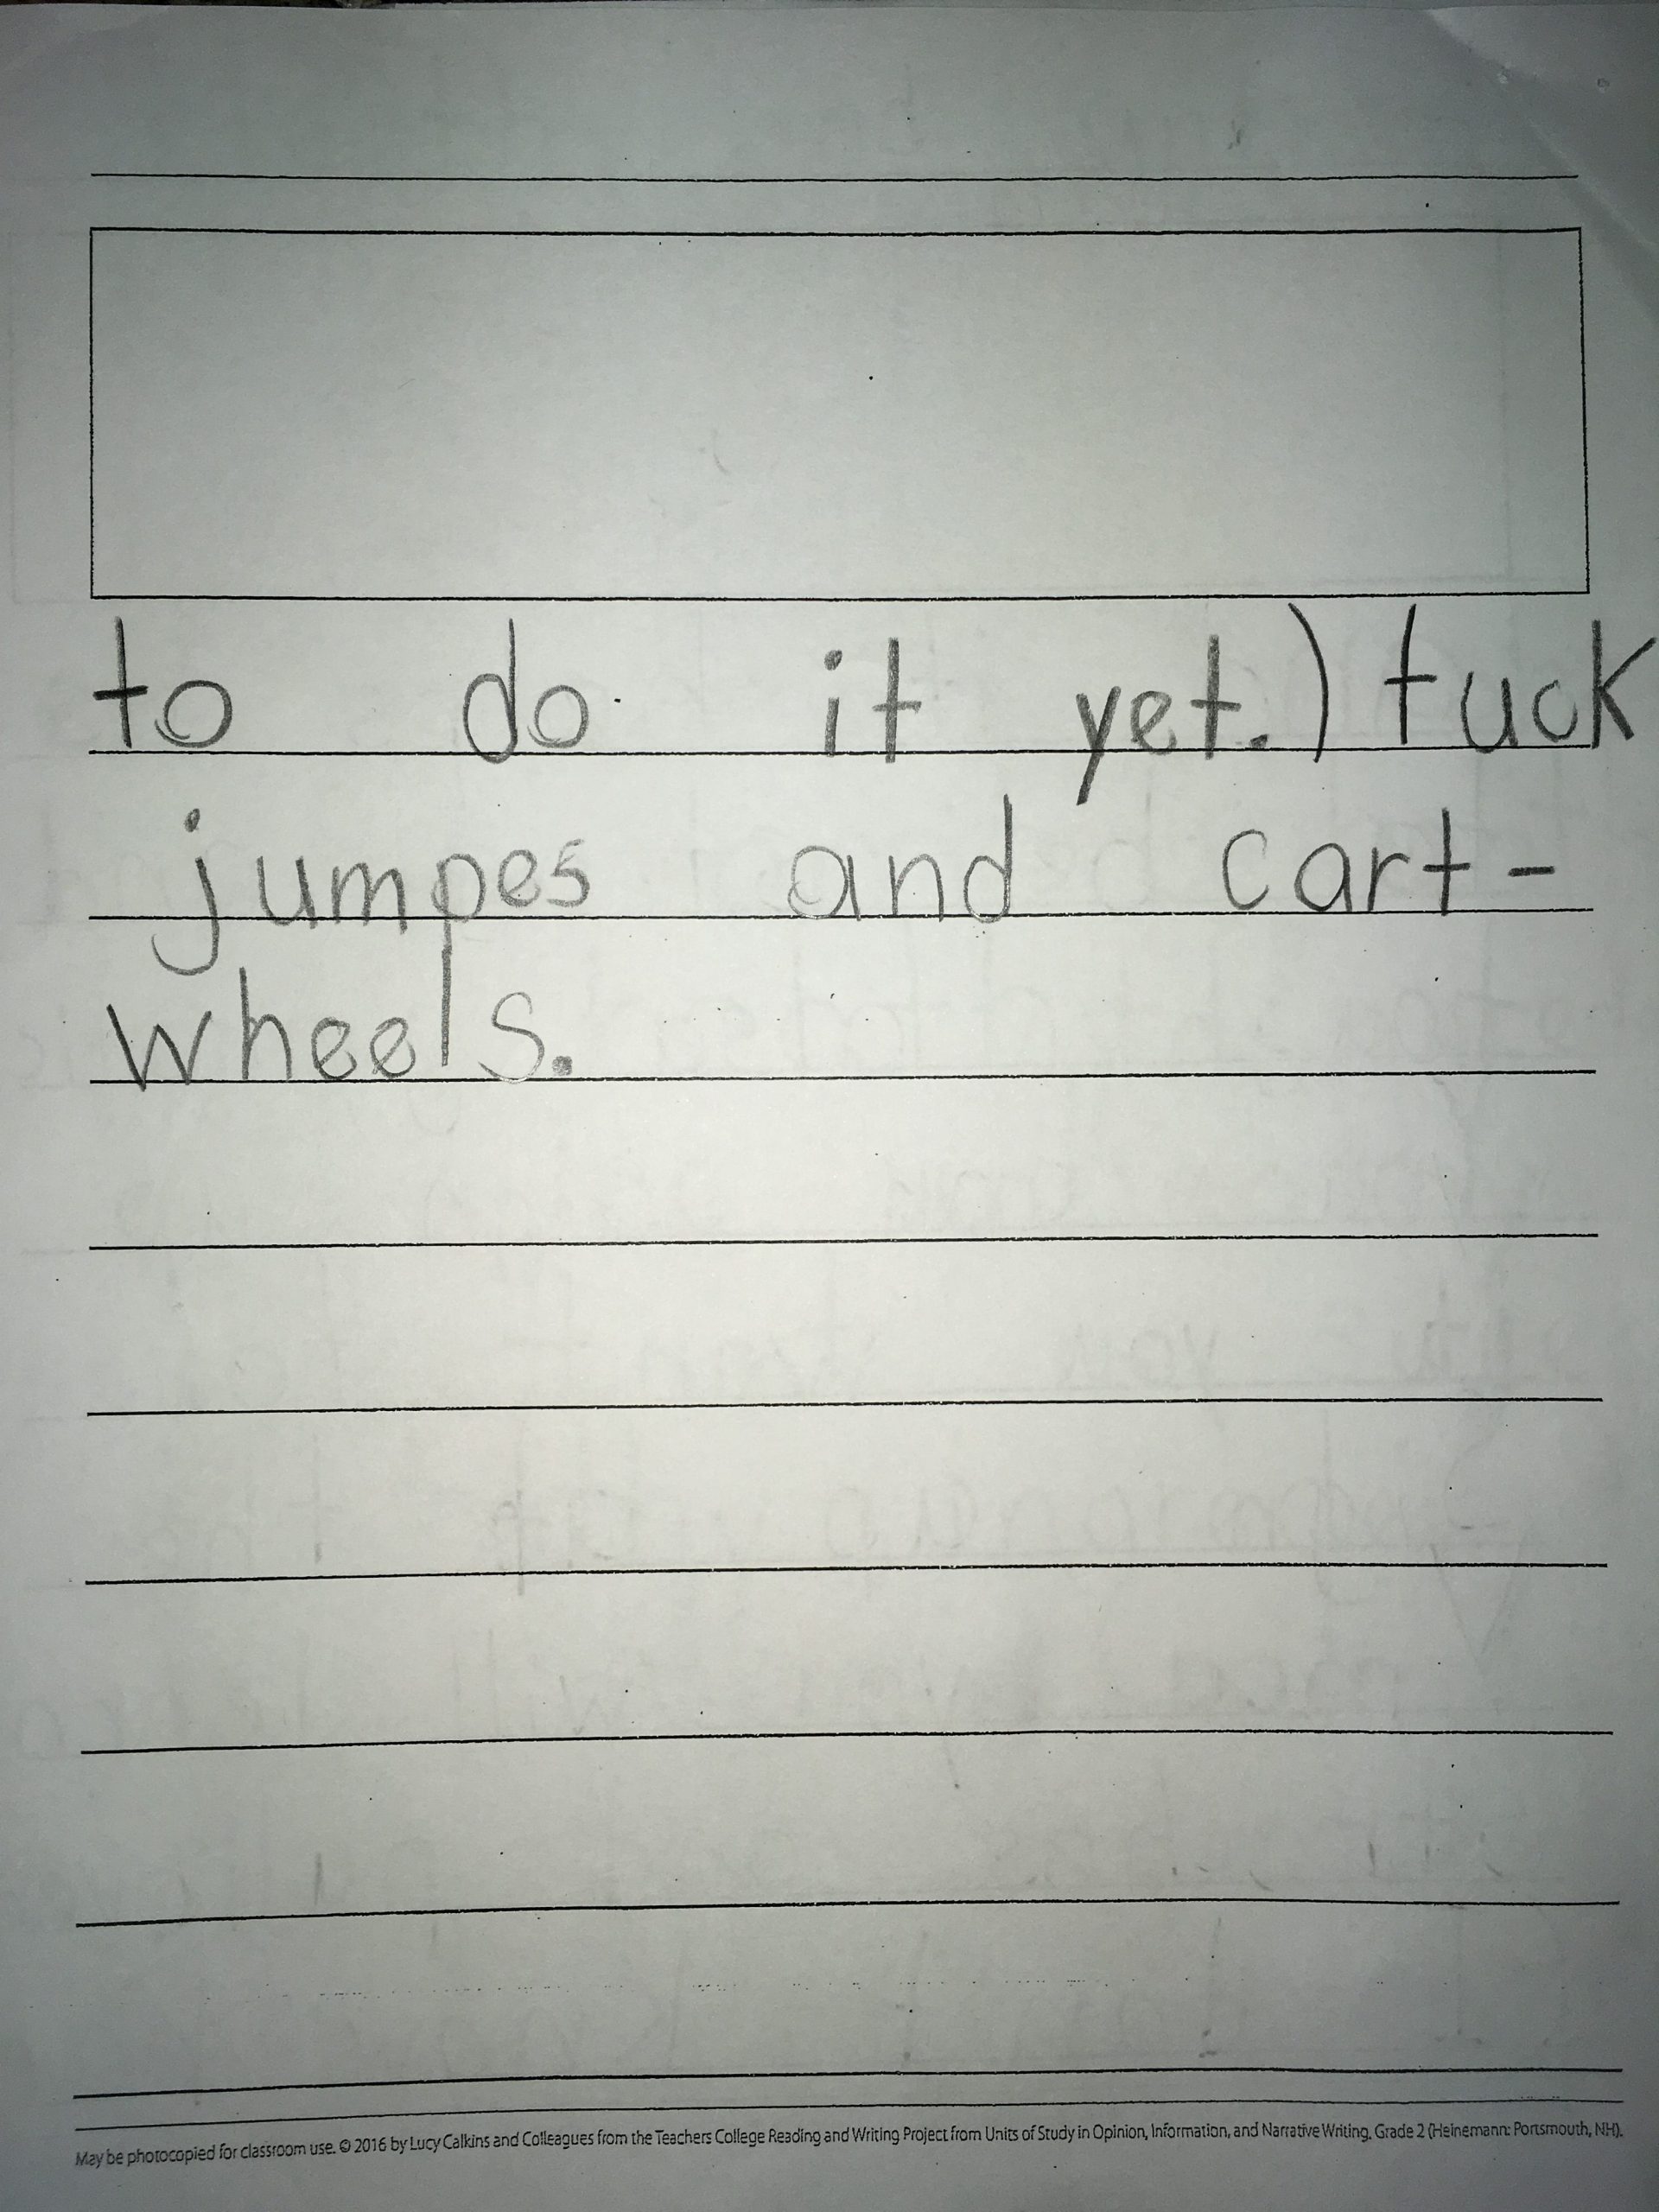 to do it yet.) tuck
jumpes and cart-
wheels.
May be photocopied for classroom use. © 2016 by Lucy Calkins and Colleagues from the Teachers College Reading and Writing Project from Units of Study in Opinion, Information, and Narrative Writing, Grade 2 (Heinemann: Portsmouth, NH).